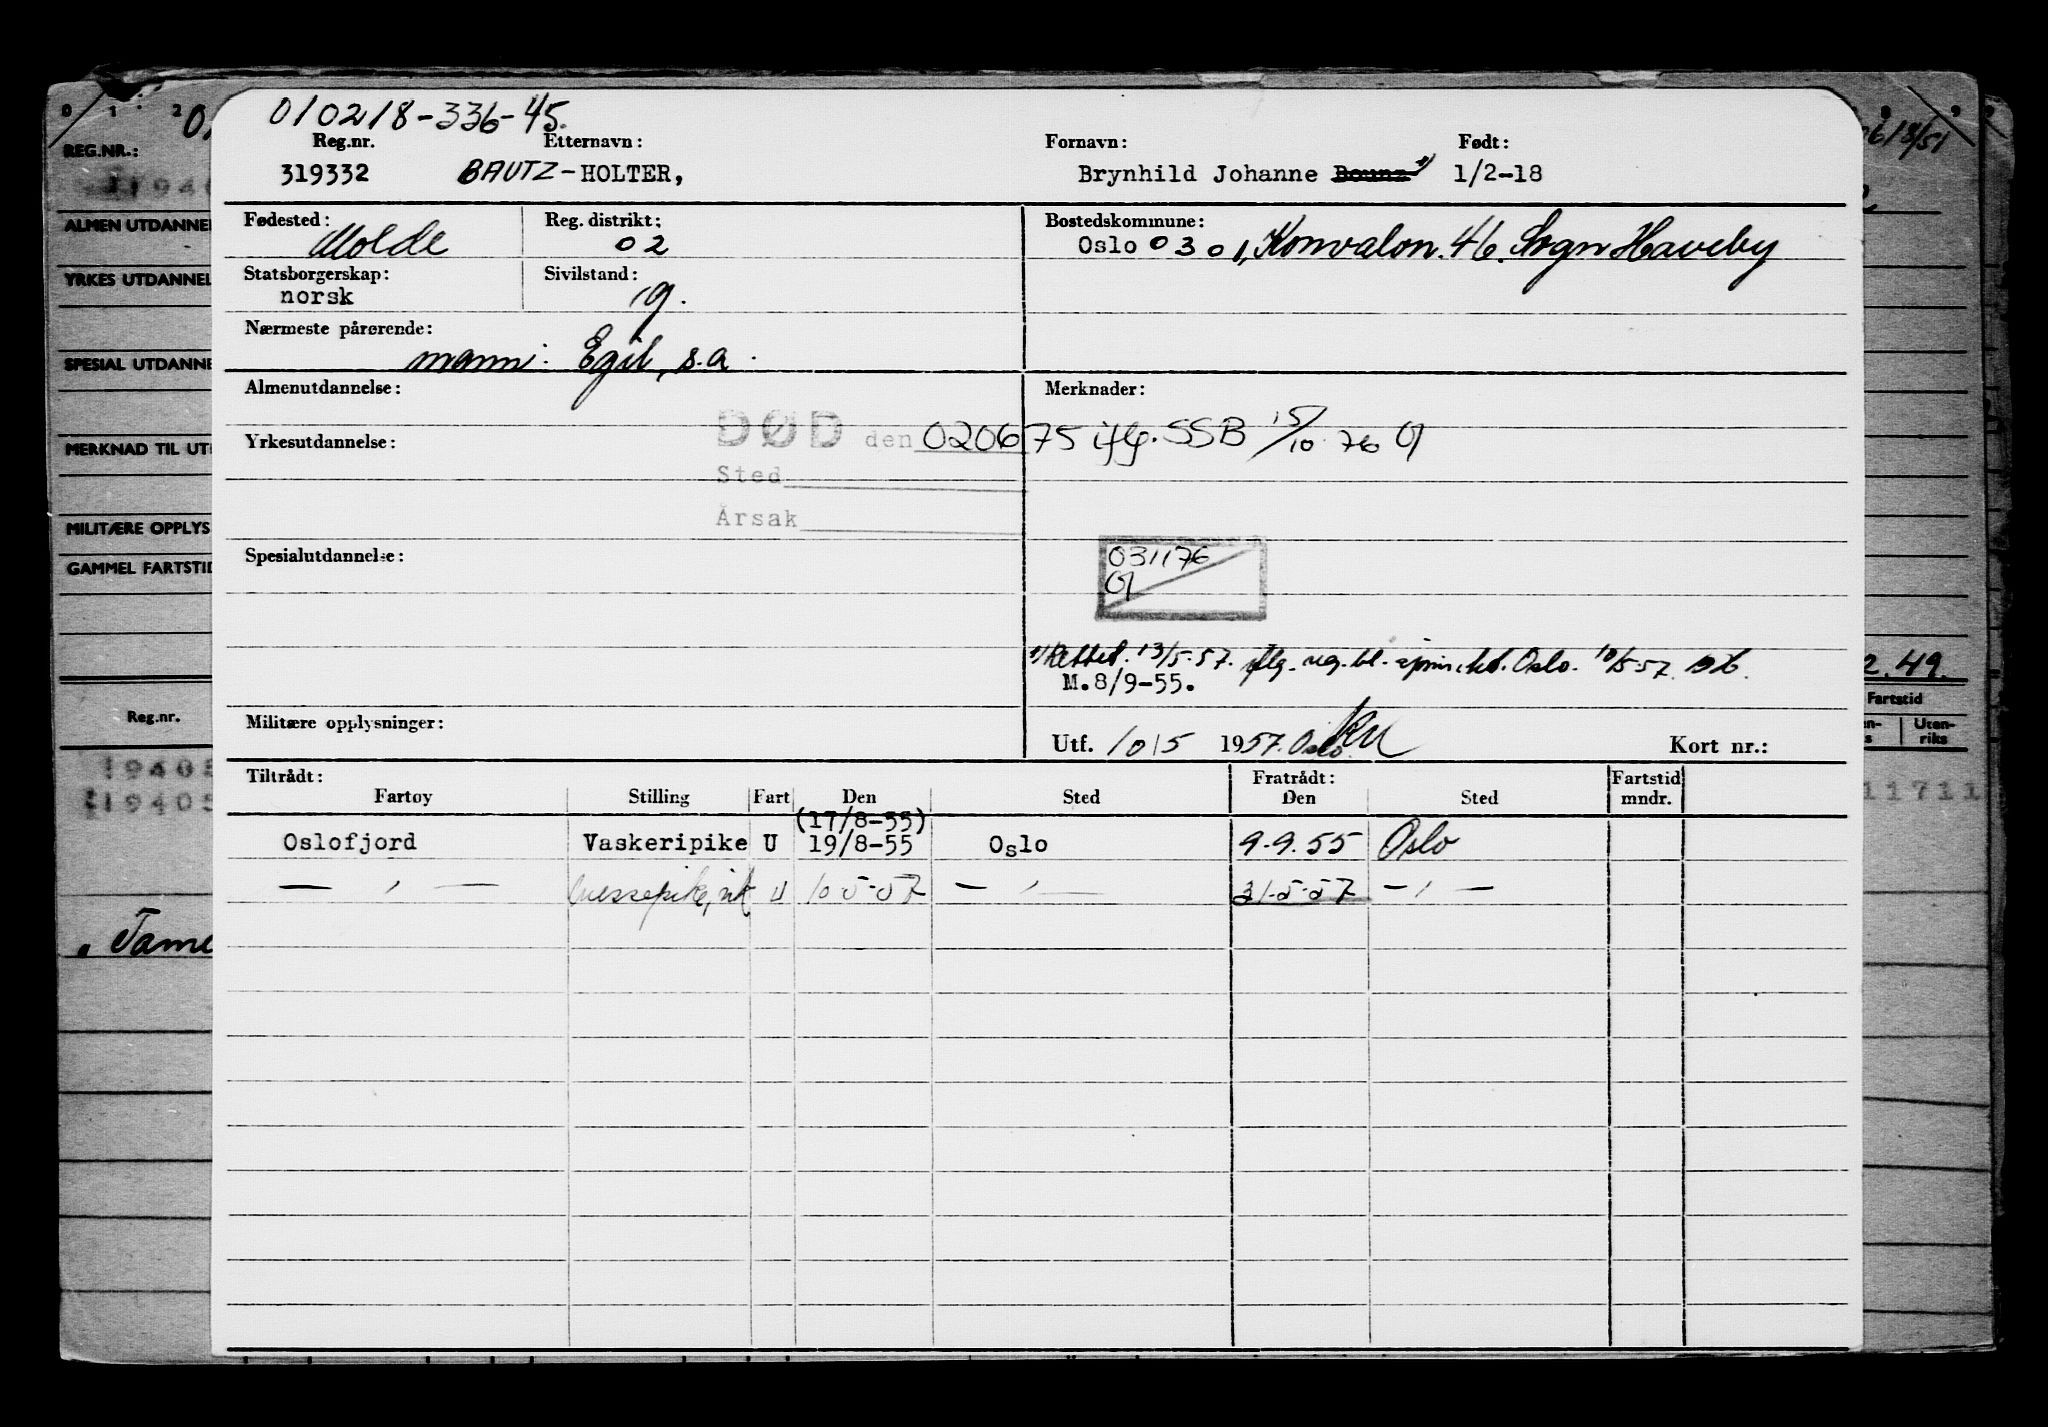 010218-336-45.
Reg.nr. Etternavn: Fornavn: Født:
319332 BAUTZ-HOLTER, Brynhild Johanne 1) 1/2-18
Fødested: Reg. distrikt: Bostedskommune:
Molde 02 Oslo 0301, Konvalon. 46. Sogn Haveby
Statsborgerskap: Sivilstand:
norsk g.
Nærmeste pårørende:
mann: Egil, s.a.
Almenutdannelse: Merknader:
DØD den 020675 iflg. SSB 15/10 76
Yrkesutdannelse:
Sted
Årsak
Spesialutdannelse:
031176
1) Rettet. 13/5-57. iflg. reg.bl. Oslo. 10/5-57.
M.8/9-55.
Militære opplysninger: Utf. 10/5 1957. Oslo. Kort nr.:
Tiltrådt: Fratrådt: Fartstid
Fartøy Stilling Fart Den Sted Den Sted mndr.
(17/8-55)
Oslofjord Vaskeripike U 19/8-55 Oslo 9-9.55 Oslo
— , — Messepike, U 10-5-57 — , — 31-5-57 — , —
0 1 2
REG.NR.:
1940
ALMEN UTDANNEL
YRKES UTDANNEL
SPESIAL UTDANNE
MERKNAD TIL UT
MILITÆRE OPPLYS
GAMMEL FARTSTID
Reg.nr.
19405
19405
2.49.
Fartstid
Uten-
riks
11711